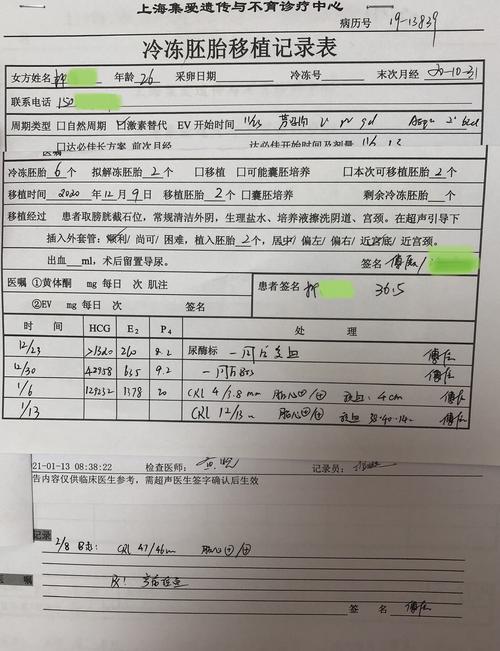 上海集爱遗传与不育诊疗中心
病历号 19-13839
冷冻胚胎移植记录表
女方姓名 年龄 26 采卵日期 冷冻号 末次月经 20-10-31
联系电话 150
周期类型 □自然周期 ☑激素替代 EV开始时间 11/03
□达必佳长方案 前次月经 达必佳开始时间及剂量
医嘱
冷冻胚胎 6 个 拟解冻胚胎 2 个 □移植 □可能囊胚培养 □本次可移植胚胎 2 个
移植时间 2020 年 12 月 9 日 移植胚胎 2 个 □囊胚培养 剩余冷冻胚胎 个
移植经过 患者取膀胱截石位,常规清洁外阴,生理盐水、培养液擦洗阴道、宫颈。在超声引导下
插入外套管:顺利/尚可/困难,植入胚胎 2 个,居中/偏左/偏右/近宫底/近宫颈。
出血 ml,术后留置导尿。 签名
医嘱 ①黄体酮 mg 每日 次 肌注 患者签名 36.5
②EV mg 每日 次 签名
时 间 HCG E2 P4 处 理
12/23 >1320 260 8.2 尿酶标 一周后
12/30 42958 635 9.2 一周后B超
1/6 129232 1378 20 CRL 4/3.8 mm 胎心⊕/⊕ 4cm
1/13 CRL 12/13 胎心⊕/⊕ 38·40·14
21-01-13 08:38:22 检查医师: 记录员:
告内容仅供临床医生参考,需超声医生签字确认后生效
记录
2/8 B超: CRL 47/46mm 胎心⊕/⊕
医 嘱
签 名